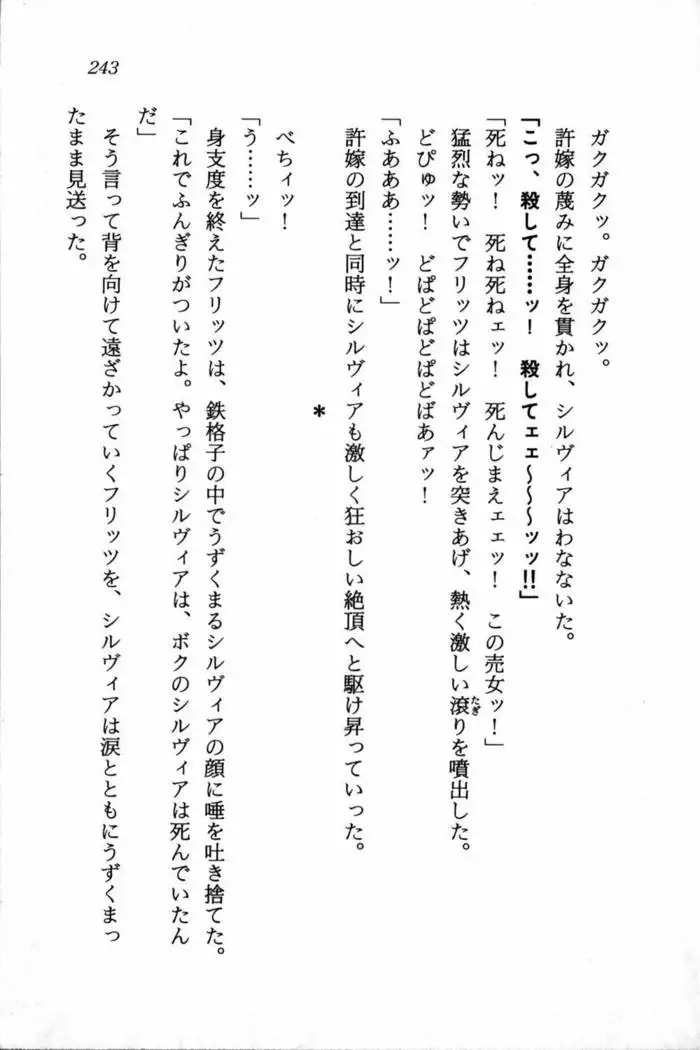 243
ガクガクッ。ガクガクッ。
許嫁の蔑みに全身を貫かれ、シルヴィアはわなないた。
「こっ、殺して……ッ！　殺してェェ～～～ッッ!!」
「死ねッ！　死ね死ねェッ！　死んじまえェェッ！　この売女ッ！」
猛烈な勢いでフリッツはシルヴィアを突きあげ、熱く激しい滾りを噴出した。
たぎ
どぴゅッ！　どぱどぱどぱどばあァッ！
「ふあああ……ッ！」
許嫁の到達と同時にシルヴィアも激しく狂おしい絶頂へと駆け昇っていった。
＊
べちィッ！
「う……ッ」
身支度を終えたフリッツは、鉄格子の中でうずくまるシルヴィアの顔に唾を吐き捨てた。
「これでふんぎりがついたよ。やっぱりシルヴィアは、ボクのシルヴィアは死んでいたん
だ」
そう言って背を向けて遠ざかっていくフリッツを、シルヴィアは涙とともにうずくまっ
たまま見送った。